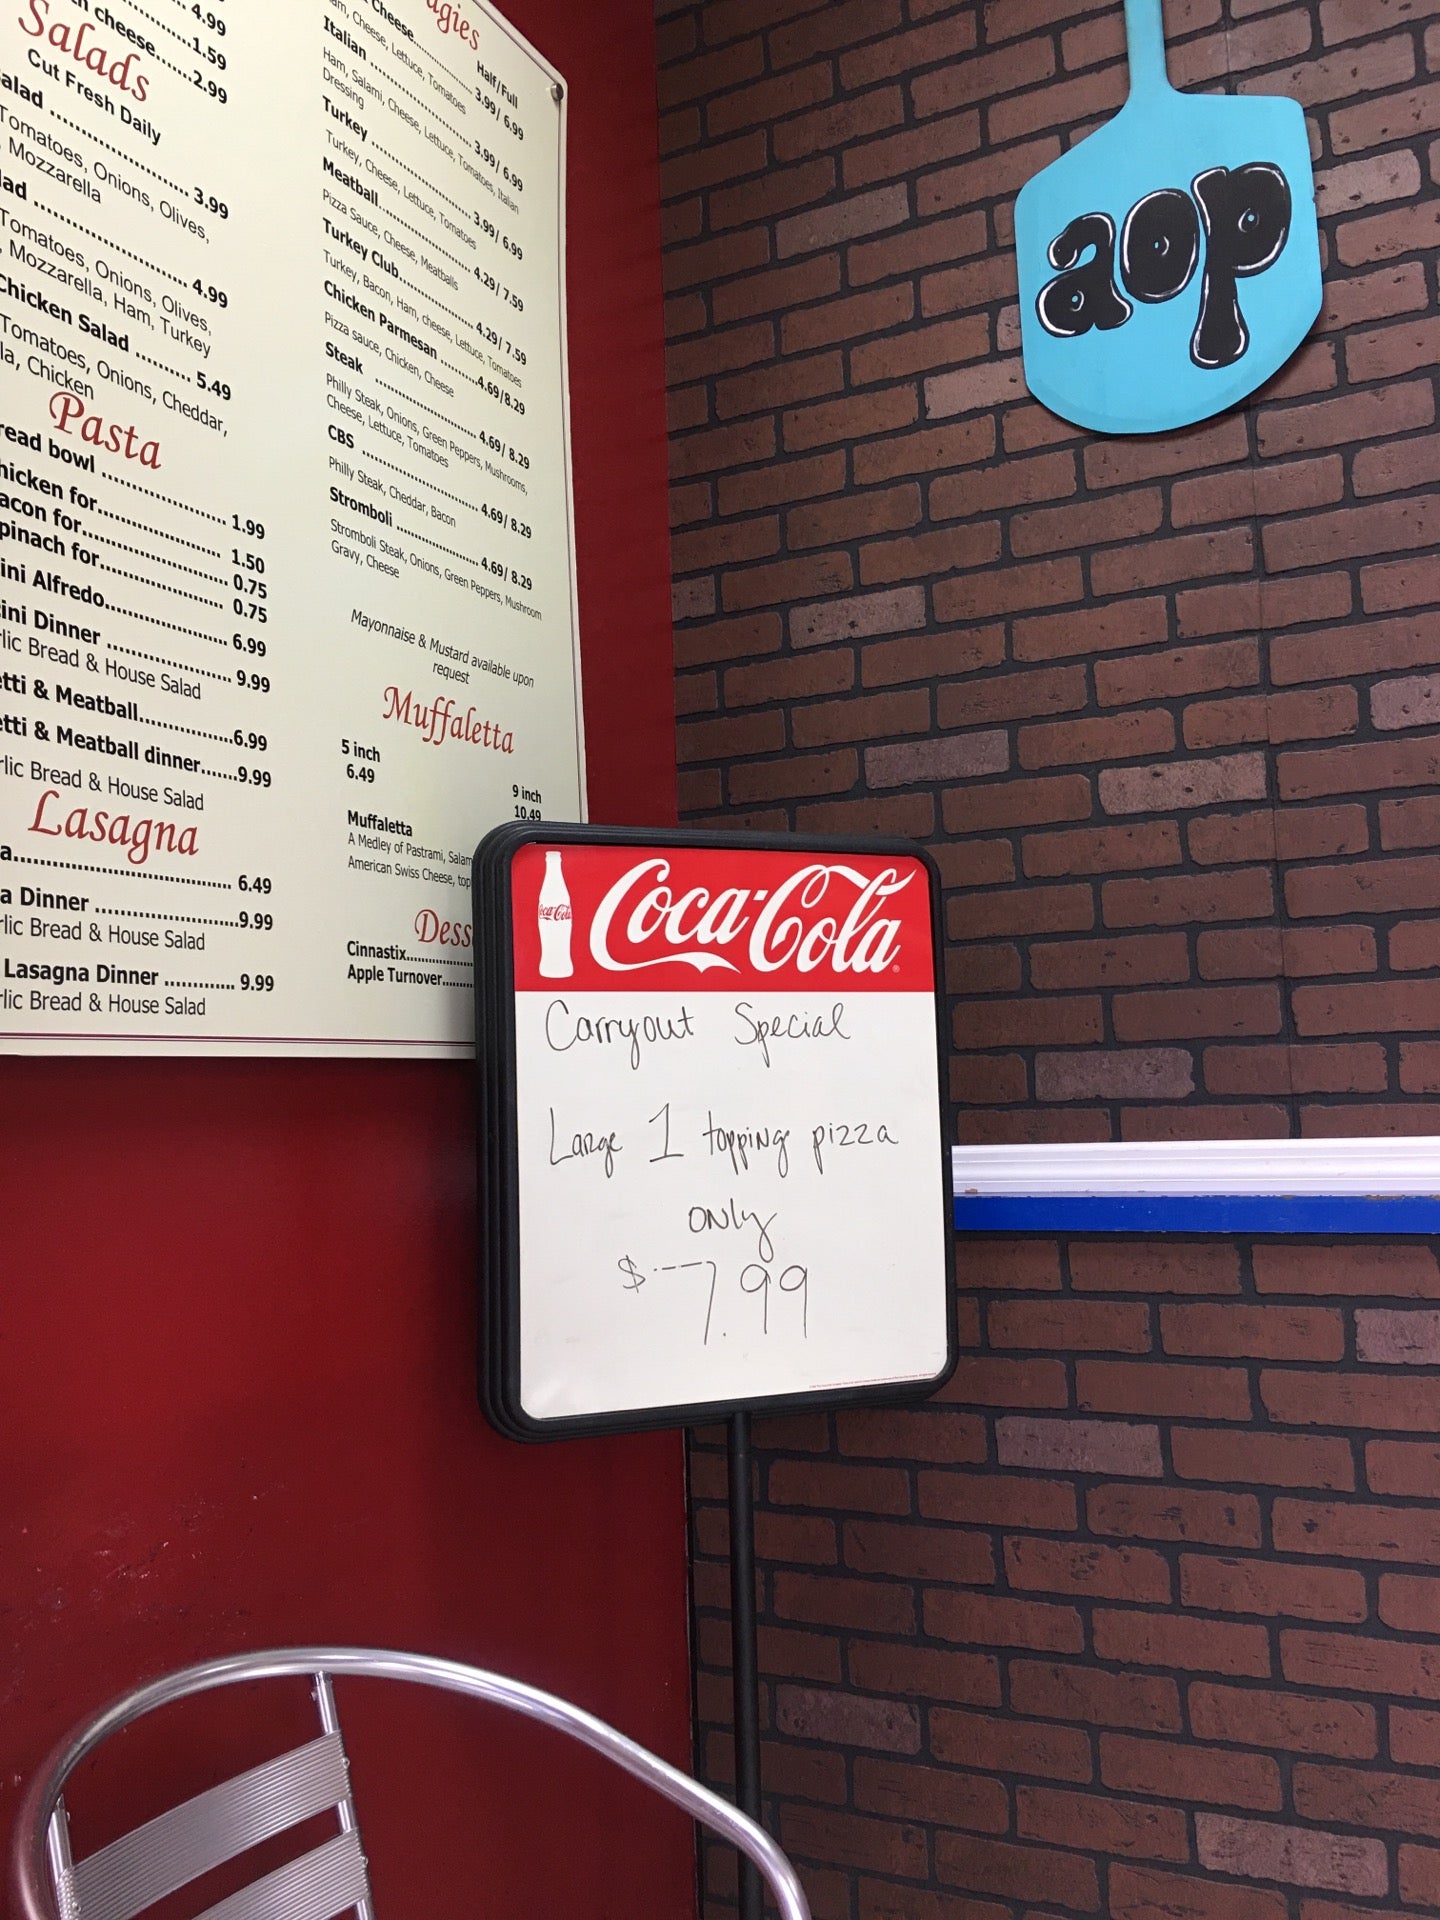 4.99
1.59
cheese.......2.99
Salads
Cut Fresh Daily
3.99
Tomatoes, Onions, Olives,
Mozzarella
4.99
Tomatoes, Onions, Olives,
Mozzarella, Ham, Turkey
Chicken Salad ........ 5.49
Tomatoes, Onions, Cheddar,
Chicken
Pasta
bowl .................. 1.99
for.................. 1.50
for.................. 0.75
for.................. 0.75
Alfredo.................. 6.99
Dinner .................. 9.99
Bread & House Salad
& Meatball..............6.99
& Meatball dinner.......9.99
Bread & House Salad
Lasagna
6.49
Dinner .....................9.99
Bread & House Salad
Lasagna Dinner ............. 9.99
Bread & House Salad
Half/Full
Cheese.............. 3.99/ 6.99
Cheese, Lettuce, Tomatoes
Italian .................. 3.99/ 6.99
Ham, Salami, Cheese, Lettuce, Tomatoes, Italian
Dressing
Turkey .................. 3.99/ 6.99
Turkey, Cheese, Lettuce, Tomatoes
Meatball.................. 4.29/ 7.59
Pizza Sauce, Cheese, Meatballs
Turkey Club.................. 4.29/ 7.59
Turkey, Bacon, Ham, cheese, Lettuce, Tomatoes
Chicken Parmesan ..........4.69/8.29
Pizza sauce, Chicken, Cheese
Steak .................. 4.69/ 8.29
Philly Steak, Onions, Green Peppers, Mushrooms,
Cheese, Lettuce, Tomatoes
CBS .................. 4.69/ 8.29
Philly Steak, Cheddar, Bacon
Stromboli .................. 4.69/ 8.29
Stromboli Steak, Onions, Green Peppers, Mushroom
Gravy, Cheese
Mayonnaise & Mustard available upon
request
Muffaletta
5 inch 9 inch
6.49 10.49
Muffaletta
A Medley of Pastrami,
American Swiss Cheese,
Cinnastix...............
Apple Turnover.........
aop
Coca-Cola
Coca-Cola
Carryout Special
Large 1 topping pizza
only
$ 7.99